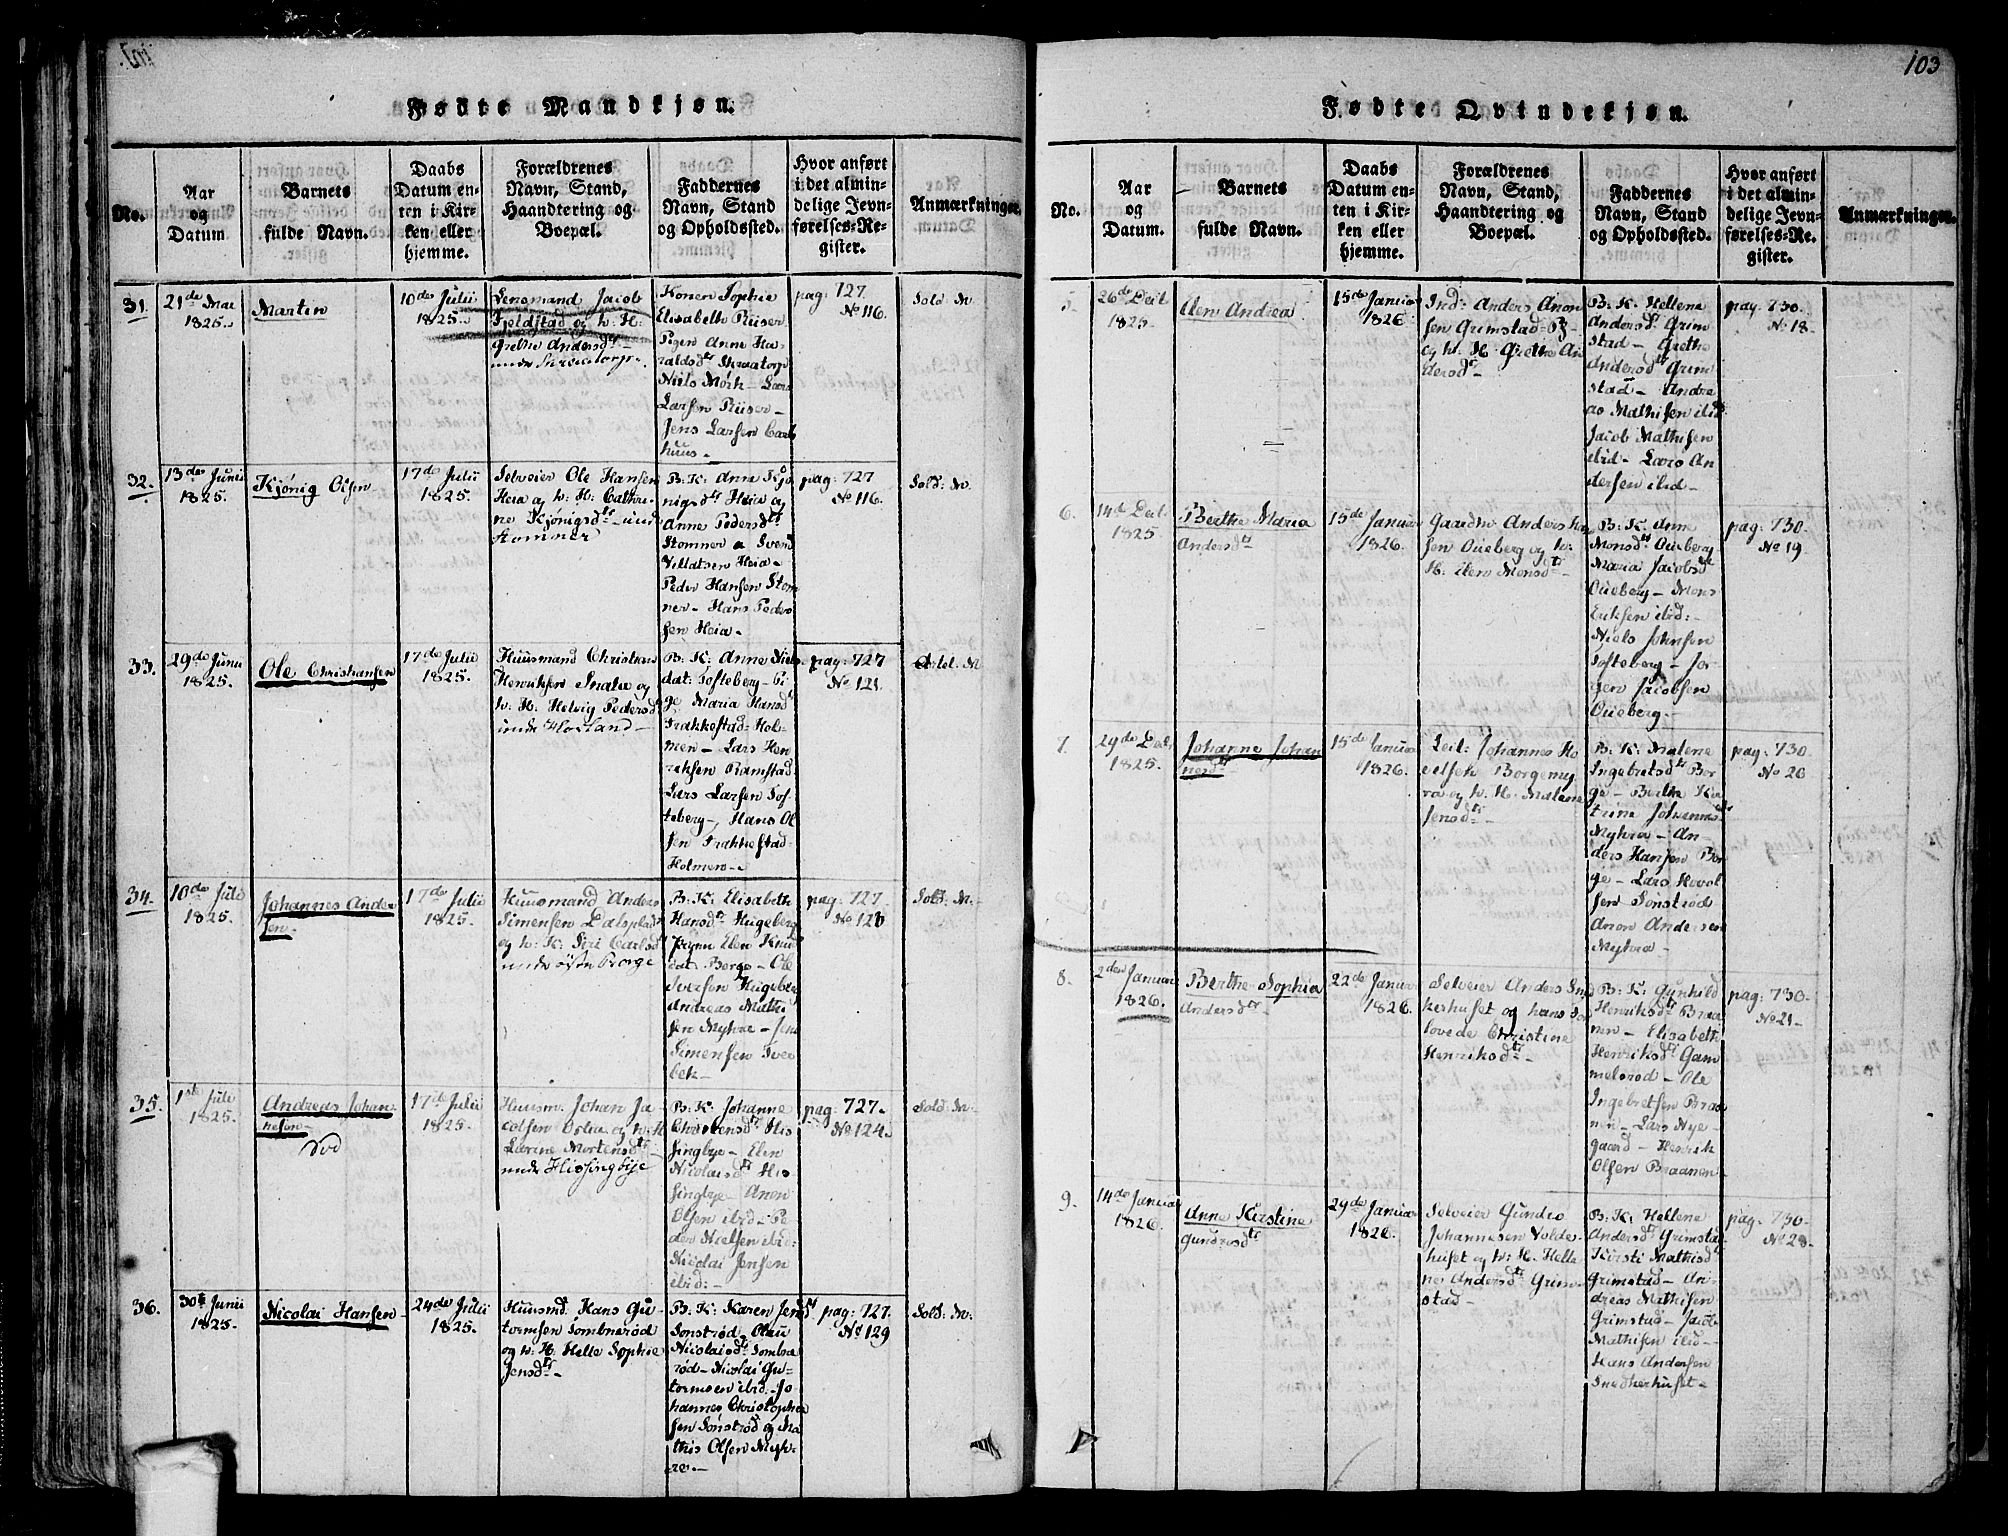 103
Fødte Mandkjøn.
No.
Aar
og
Datum
Barnets
fulde Navn.
Daabs
Datum en-
ten i Kir-
ken eller
hjemme.
Forældrenes
Navn, Stand,
Haandtering og
Boepæl.
Faddernes
Navn, Stand
og Opholdssted.
Hvor anført
i det almin-
delige Jevn-
førelses-Re-
gister.
Anmærkninger.
31.
21de Mai
1825.
Martin
10de Julii
1825.
Lensmand Jacob
Fjeldstad og h: H:
Grethe Andersd
Konen Sophie
Elisabeth Riiser
Pigen Anne Ha-
raldsd
Niels Mørk - Lars
Larsen Riiser -
Jens Larsen Carls
huus -
pag: 727
No 116.
Sold: N.
32.
13de Junii
1825.
Kjønig Olsen
17de Julii
1825.
Selveier Ole Hansen
Heia og h: H: Cathri-
ne Kjønigsdtr und
Stomner
B: K: Anne Kjø
nigsdtr Heia og
Anne Pedersdtr
Stomner
Heia -
Peder Hansen Stom
ner - Hans Peder
sen Heia -
pag: 727
No 116.
Sold: N.
33.
29de Junii
1825.
Ole Christiansen
17de Julii
1825.
Huusmand Christian
Henriksen og
h: H: Helvig Pedersd
B: K: Anne Niels
dat: Tofteberg - Pi
ge Maria Hansd
Frakkestad - Hol-
men - Lars Hen
riksen Ramstad
Lars Larsen Tof-
teberg - Hans Ol
sen Frakkestad
Holmen -
pag: 727
No 121.
34.
10de Julii
1825.
Johannes Ander
sen -
17de Julii
1825.
Huusmand Anders
Simensen
og h: K: Siri Carlsd
under østre Borge
B: K: Elisabeth
Hansdtr Hugeberg
Elen Knu
dat: Borge - Ole
Iversen Hugeberg
Andreas Mathi
sen Myhre - Jens
Simensen Tvee
bek -
pag: 727
Sold: N. -
35.
1ste Julii
1825.
Andreas Johan
nesen
død
17de Julii
1825.
Huusm: Johan Ja-
cobsen og h: H
Lærine Mortensdtr
under Hissingbye
B: K: Johanne
His
singbye - Elen
Nicolaisdtr His
singbye - Anon
Olsen ibid - Pe-
der Nielsen ibid:
Nicolai Jensen
ibid: -
pag: 727.
No 124.
Sold: N. -
36.
30te Junii
1825.
Nicolai Hansen
24de Julii
1825.
Huusmd: Hans Gu-
tormsen Sombnerød
og h: H. Helle Sophie
Jensdtr -
B: K: Karen Jensd
Sonstrød - Olau
Nicolaisdtr Sombne
rød - Nicolai Gu-
tormsen ibid. - Jo
hannes Christophe
sen Sonstrød og Ma
this Olsen Myh-
re -
pag: 727.
No 129
Sold: N. -
Fødte Qvindekjøn.
No.
Aar
og
Datum.
Barnets
fulde Navn.
Daabs
Datum en-
ten i Kir-
ken eller
hjemme.
Forældrenes
Navn, Stand,
Haandtering og
Boepæl.
Faddernes
Navn, Stand
og Opholdssted.
Hvor anført
i det almin-
delige Jevn-
førelses-Re-
gister.
Anmærkninger.
5.
26de Decb.
1825.
Elen Andrea
15de Januar
1826.
Ind: Anders Anon
sen Grimstad
og h: H: Grethe An
dersdtr -
B: K: Hellene
Andersdtr Grim
stad - Grethe
Andersdtr Grim
stad - Andre
as Mathisen ibid
Jacob Mathisen
ibid - Lars An
dersen ibid -
pag: 730.
No 18 -
6.
14de Decb.
1825
Berthe Maria
Andersdtr
15de Januar
1826.
Anders
sen Oueberg og h:
H: Elen Monsdtr -
B: K: Anne
Monsdtr Oueberg
Maria Jacobsdtr
Oueberg - Mons
Eriksen ibid: -
Niels Johnsen
Tofteberg - Jør
gen Jacobsen
Oueberg -
pag: 730.
No 19.
7.
29de Decb.
1825.
Johanne Johan
nesdtr -
15de Januar
1826.
Leil: Johannes Ho
Borgemyh
ra og h: H: Malene
Jensdtr -
B: K: Malene
Ingebretsdtr Bor
ge - Berthe Ka
trine Johannesdtr
Myhra - An-
ders Hansen Bor
ge - Lars Hovel
sen Sonstrød
Anon Andersen
Myhra -
pag: 730.
No 20
8.
2den Januar
1826.
Berthe Sophia
Andersdtr -
22de Januar
1826.
Selveier Anders Sned
kerhuset og hans For
lovede Christine
Henriksdtr -
B: K: Gunhild
Henriksdtr Braa
nen - Elisabeth
Henriksdtr Gam
melsrød - Ole
Ingebretsen Braa
nen - Lars Nye
gaard - Henrik
Olsen Braanen -
pag: 730 -
No 21 -
9.
14de Januar
1826.
Anne Kirstine
Gundersdtr
29de Januar
1826.
Selveier Gunder
Johannesen Volds-
huset og h: H. Helle
ne Andersdtr Grim
stad -
B: K: Hellene
Andersdtr Grimsta
Kirsti Mathisd
Grimstad - An-
dreas Mathisen
Grimstad - Jacob
Mathisen ibid -
Hans Andersen
Snedkerhuset -
pag. 730 -